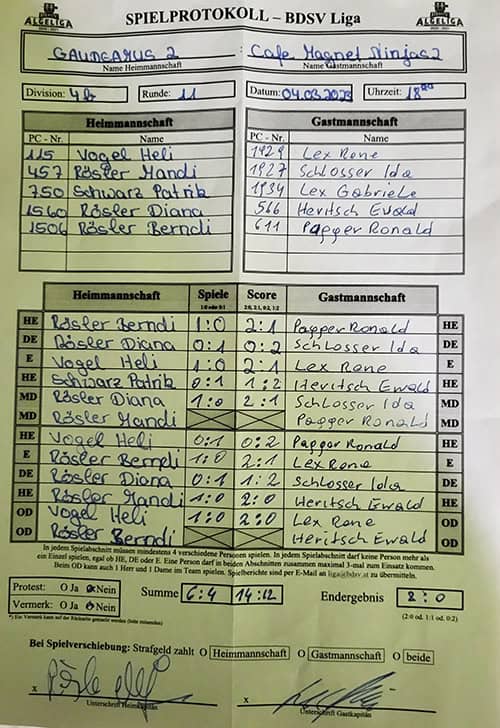 ALGELIGA SPIELPROTOKOLL – BDSV Liga ALGELIGA
GAUDEAMUS 2 : Cafe Magnet Ninjas 2
Name Heimmannschaft Name Gastmannschaft
Division: 4b Runde: 11 Datum: 04.03.2023 Uhrzeit: 18
Heimmannschaft Gastmannschaft
PC - Nr. Name PC - Nr. Name
115 Vogel Heli 1929 Lex Rene
457 Rösler Mandi 1927 Schlosser Ida
750 Schwarz Patrik 1934 Lex Gabriele
1560 Rösler Diana 566 Heritsch Ewald
1506 Rösler Berndi 611 Papper Ronald
Heimmannschaft Spiele Score Gastmannschaft
1:0 oder 0:1 2:0, 2:1, 0:2, 1:2
HE Rösler Berndi 1:0 2:1 Papper Ronald HE
DE Rösler Diana 0:1 0:2 Schlosser Ida DE
E Vogel Heli 1:0 2:1 Lex Rene E
HE Schwarz Patrik 0:1 1:2 Heritsch Ewald HE
MD Rösler Diana 1:0 2:1 Schlosser Ida MD
MD Rösler Mandi Papper Ronald MD
HE Vogel Heli 0:1 0:2 Papper Ronald HE
E Rösler Berndi 1:0 2:1 Lex Rene E
DE Rösler Diana 0:1 1:2 Schlosser Ida DE
HE Rösler Mandi 1:0 2:0 Heritsch Ewald HE
OD Vogel Heli 1:0 2:0 Lex Rene OD
OD Rösler Berndi Heritsch Ewald OD
In jedem Spielabschnitt müssen mindestens 4 verschiedene Personen spielen. In jedem Spielabschnitt darf keine Person mehr als
ein Einzel spielen, egal ob HE, DE oder E. Eine Person darf in beiden Abschnitten zusammen maximal 3-mal zum Einsatz kommen.
Beim OD kann auch 1 Herr und 1 Dame im Team spielen. Spielberichte sind per E-Mail an liga@bdsv.at zu übermitteln.
Protest: O Ja O Nein Summe 6:4 14:12 Endergebnis 2:0
Vermerk: O Ja O Nein
*) Ein Vermerk kann auf der Rückseite gemacht werden (bitte ankreuzen) (2:0 od. 1:1 od. 0:2)
Bei Spielverschiebung: Strafgeld zahlt O Heimmannschaft O Gastmannschaft O beide
x x
Unterschrift Heimkapitän Unterschrift Gastkapitän